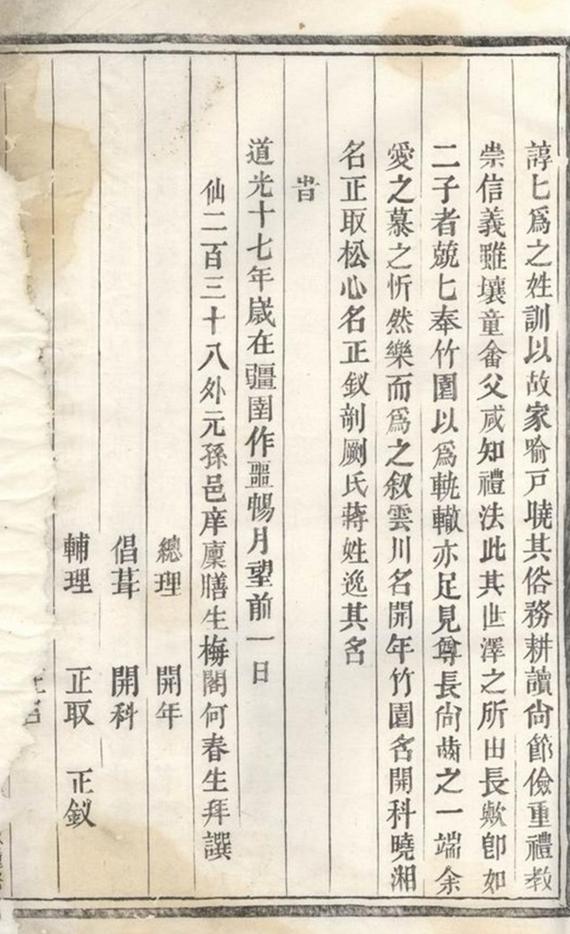 諄匕爲之姓訓以故家喻戸曉其俗務耕讀尙節儉重禮教
崇信義雖壤童畲父咸知禮法此其世澤之所由長歟卽如
二子者兢匕奉竹園以爲軌轍亦足見尊長尙齒之一端余
愛之慕之忻然樂而爲之叙雲川名開年竹園名開科曉湘
名正取松心名正釵剞劂氏蔣姓逸其名
旹
道光十七年歲在疆圉作噩暢月望前一日
仙二百三十八外元孫邑庠廩膳生梅閣何春生拜譔
總理　開年
倡葺　開科
輔理　正取　正釵